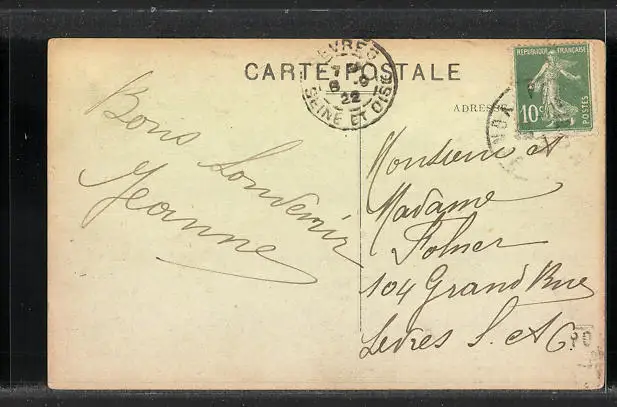 CARTE POSTALE
SEVRES
7 8
6 22
SEINE ET OISE
REPUBLIQUE FRANÇAISE
10c
POSTES
ADRES
Bons Souvenir
Jeanne
Monsieur et
Madame
Folner
104 Grand Rue
Sevres S. et O.